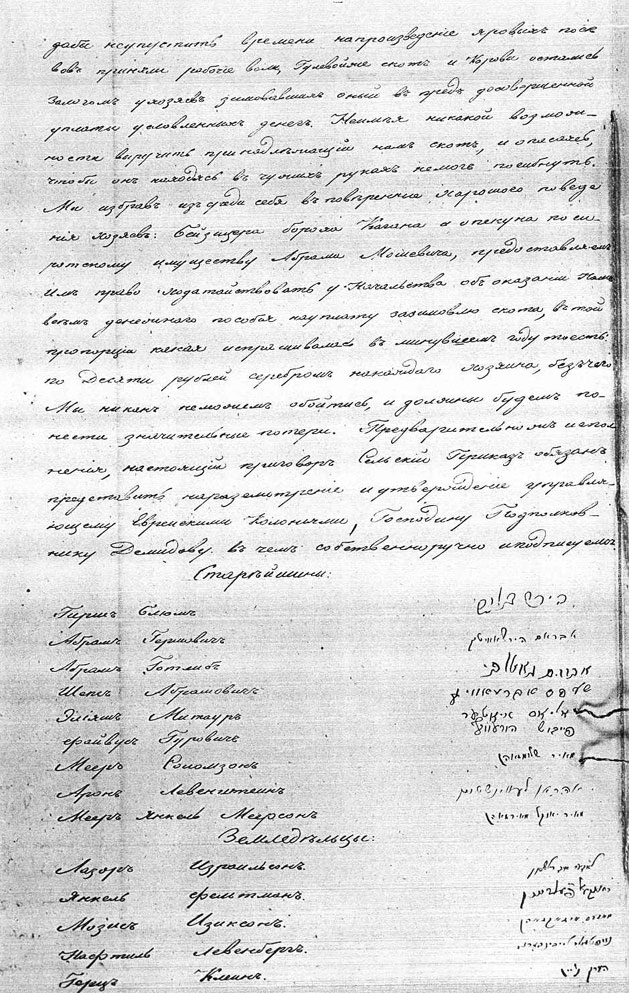 дабы неупустить времени напроизведеніе яровыхъ посѣ
вовъ приняли рабочіе волы, Гулевойже скотъ и Корова остались
залогомъ ухозяевъ зимовавшихъ оный въ предь досовершенной
уплаты условленныхъ денегъ. Неимѣя никакой возмож-
ности выручить принадлѣжащій намъ скотъ, и опасаясь,
чтобы онъ находясь въ чужихъ рукахъ немогъ погибнуть.
Мы избравъ изъ среди себя въ повѣренные хорошого поведе
нія хозяевъ: Бейзицера Бороха Кагана а опекуна по си-
ротскому имуществу Абрама Мошевича, предоставляемъ
имъ право ходатайствовать у Начальства объ оказаніи Намъ
всѣмъ денежнаго пособія науплату зазимовлю скота, въ той
пропорціи какая испрашивалась въ минувшемъ году тоесть
по Десяти рублей серебромъ накаждаго Хозяина, безъ чего
Мы никакъ неможемъ обойтись, и должны будемъ по-
нести значительные потери. Предварительно жъ испол
ненія, настоящій приговоръ Сельскій Приказъ обязанъ
представить наразсмотреніе и утвержденіе управля-
ющему Еврейскими Колоніями, Господину Подполков-
нику Демидову. въ чемъ собственноручно и подписуемся
Старѣйшины:
Гиршъ Блюмъ
Абрамъ Гершовичъ אבראם הירשאוויטץ
Абрамъ Готлибъ
Шепсъ Абрамовичъ
Эліяшъ Митауръ
Файвушъ Гуровичъ פייבוש הורעוויץ
Мееръ Соломзонъ
Аронъ Левенштейнъ
Мееръ Янкель Меерсонъ
Земледѣльцы:
Лазарь Израильсонъ.
Янкель Фельтманъ.
Мозисъ Изиксонъ.
Нафтиль Левенбергъ.
Герцъ Клейнъ.